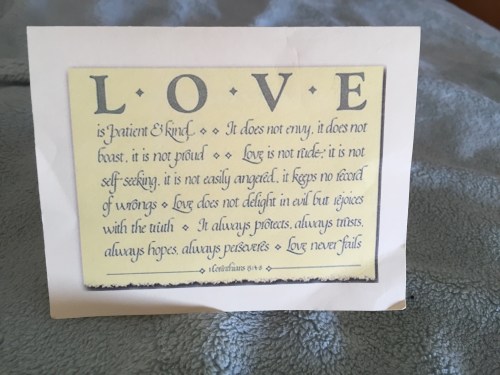 L · O · V · E
is patient & kind. It does not envy, it does not
boast, it is not proud Love is not rude, it is not
self-seeking, it is not easily angered, it keeps no record
of wrongs Love does not delight in evil but rejoices
with the truth It always protects, always trusts,
always hopes, always perseveres Love never fails
1 Corinthians 13:4-8